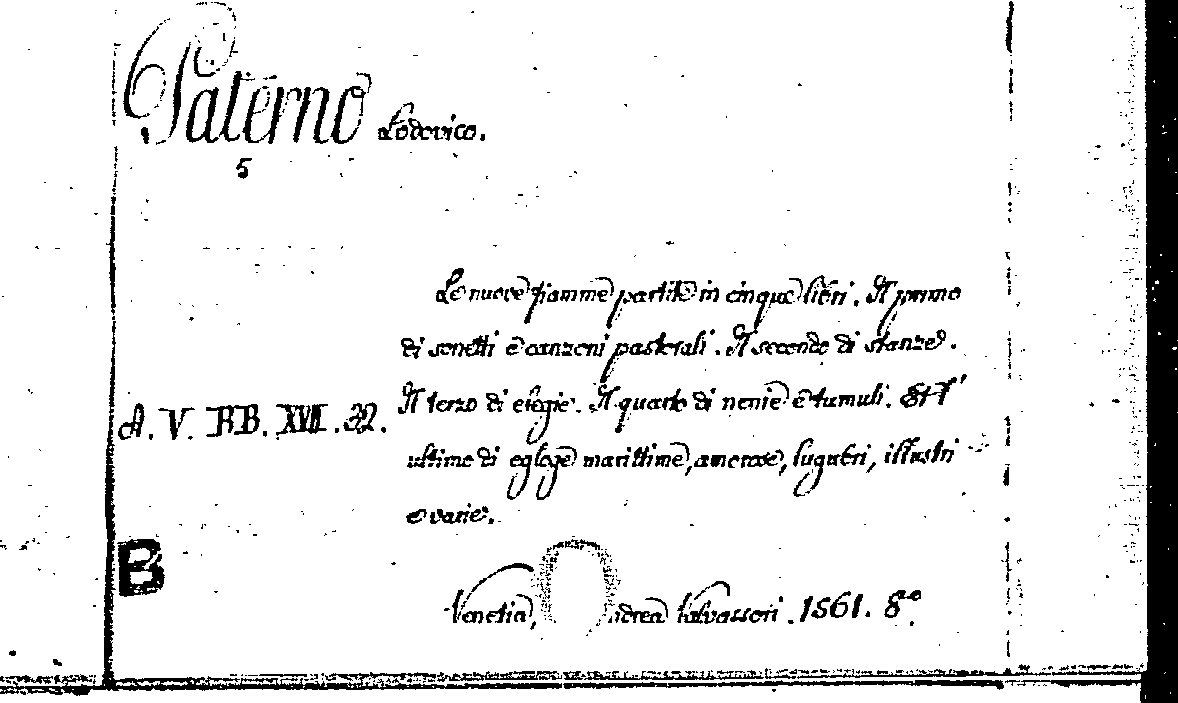 Paterno Lodovico.
5
Le nuove fiamme partite in cinque libri. Il primo
di sonetti e canzoni pastorali. Il secondo di stanze.
Il terzo di elegie. Il quarto di nenie e tumuli. Et l'
A. V. BB. XVII. 22.
ultimo di egloge marittime, amorose, lugubri, illustri
e varie.
B
Venetia, Andrea Valvassori. 1561. 8°.